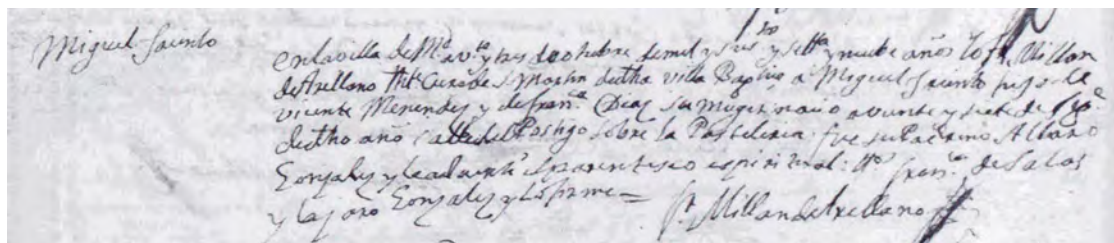 Miguel Jacinto
en la villa de Md. a Vte. y tres de octubre de mil y seis.tos y settta. y nuebe años Yo fr. Millan
de Arellano thte. Cura de S. Martin dedtha villa Baptice a Miguel Jacinto hijo de
vicente Menendez y de fran.ca Diaz su muger nacio a veinte y siete de
dedtho año Calle del Postigo sobre la Pasteleria fue su Padrino Albaro
Gonzalez y le adverti el parentesco espiritual: tt.os fran.co de Salas
y Lazaro Gonzalez y lo firme =
fr. Millan de Arellano